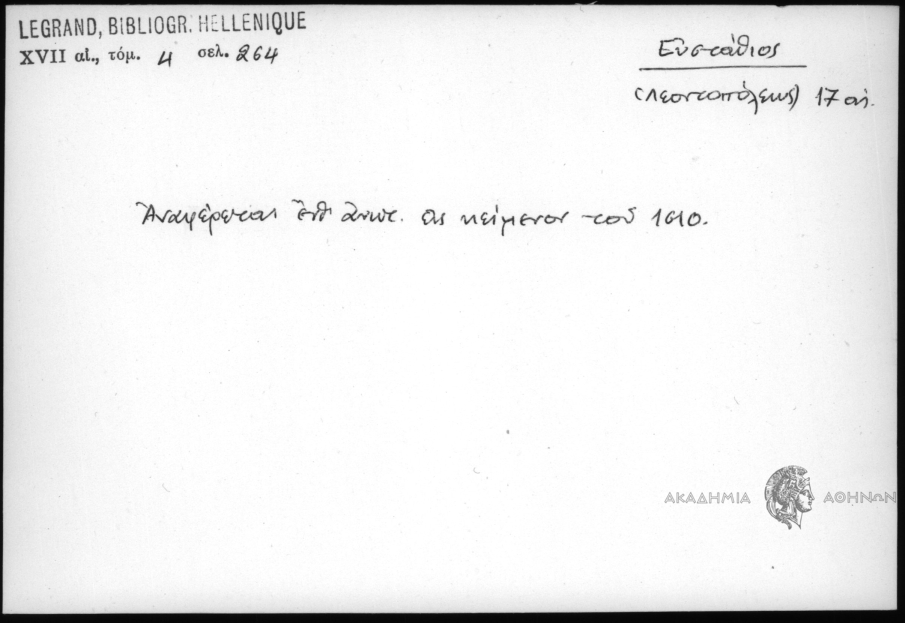 LEGRAND, BIBLIOGR. HELLENIQUE
XVII αἰ., τόμ. 4 σελ. 264
Εὐστάθιος
(Λεοντοπόλεως) 17 αἰ.
Ἀναφέρεται ἔνθ' ἀνωτ. εἰς κείμενον τοῦ 1610.
ΑΚΑΔΗΜΙΑ ΑΘΗΝΩΝ